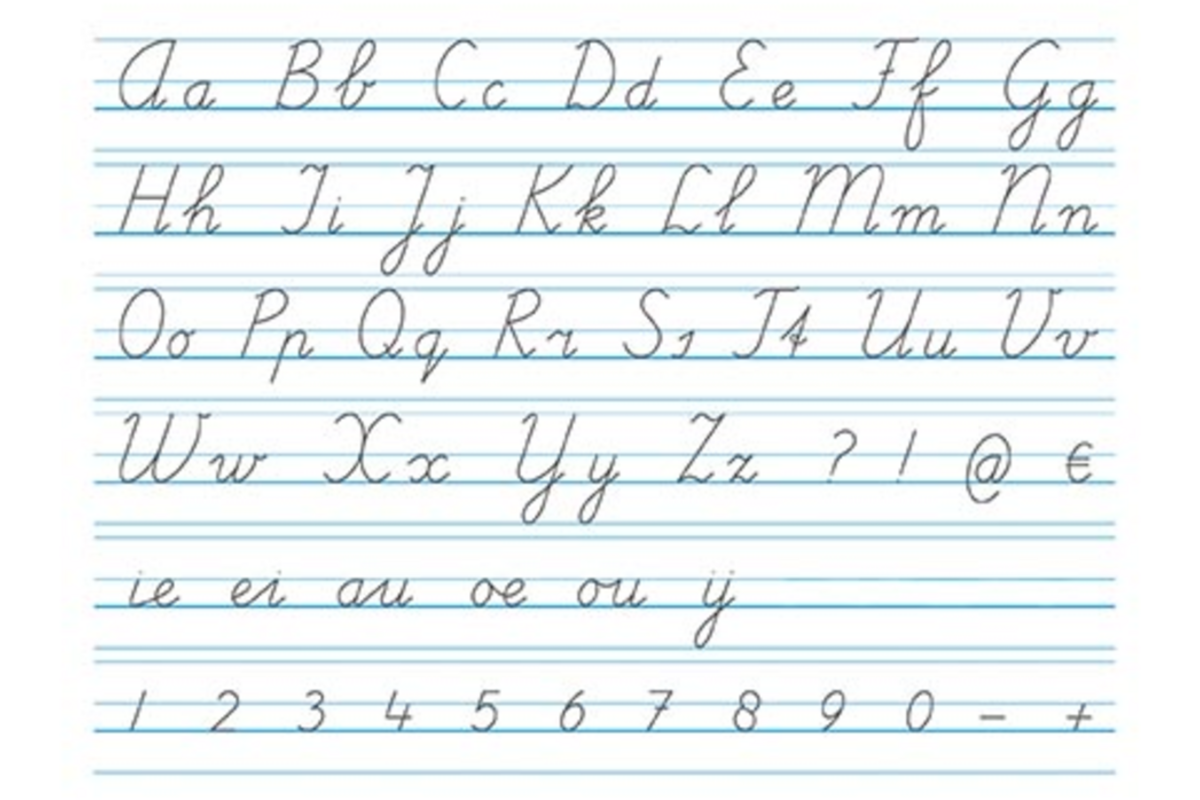 Aa Bb Cc Dd Ee Ff Gg
Hh Ii Jj Kk Ll Mm Nn
Oo Pp Qq Rr Ss Tt Uu Vv
Ww Xx Yy Zz ? ! @ €
ie ei au oe ou ij
1 2 3 4 5 6 7 8 9 0 - +